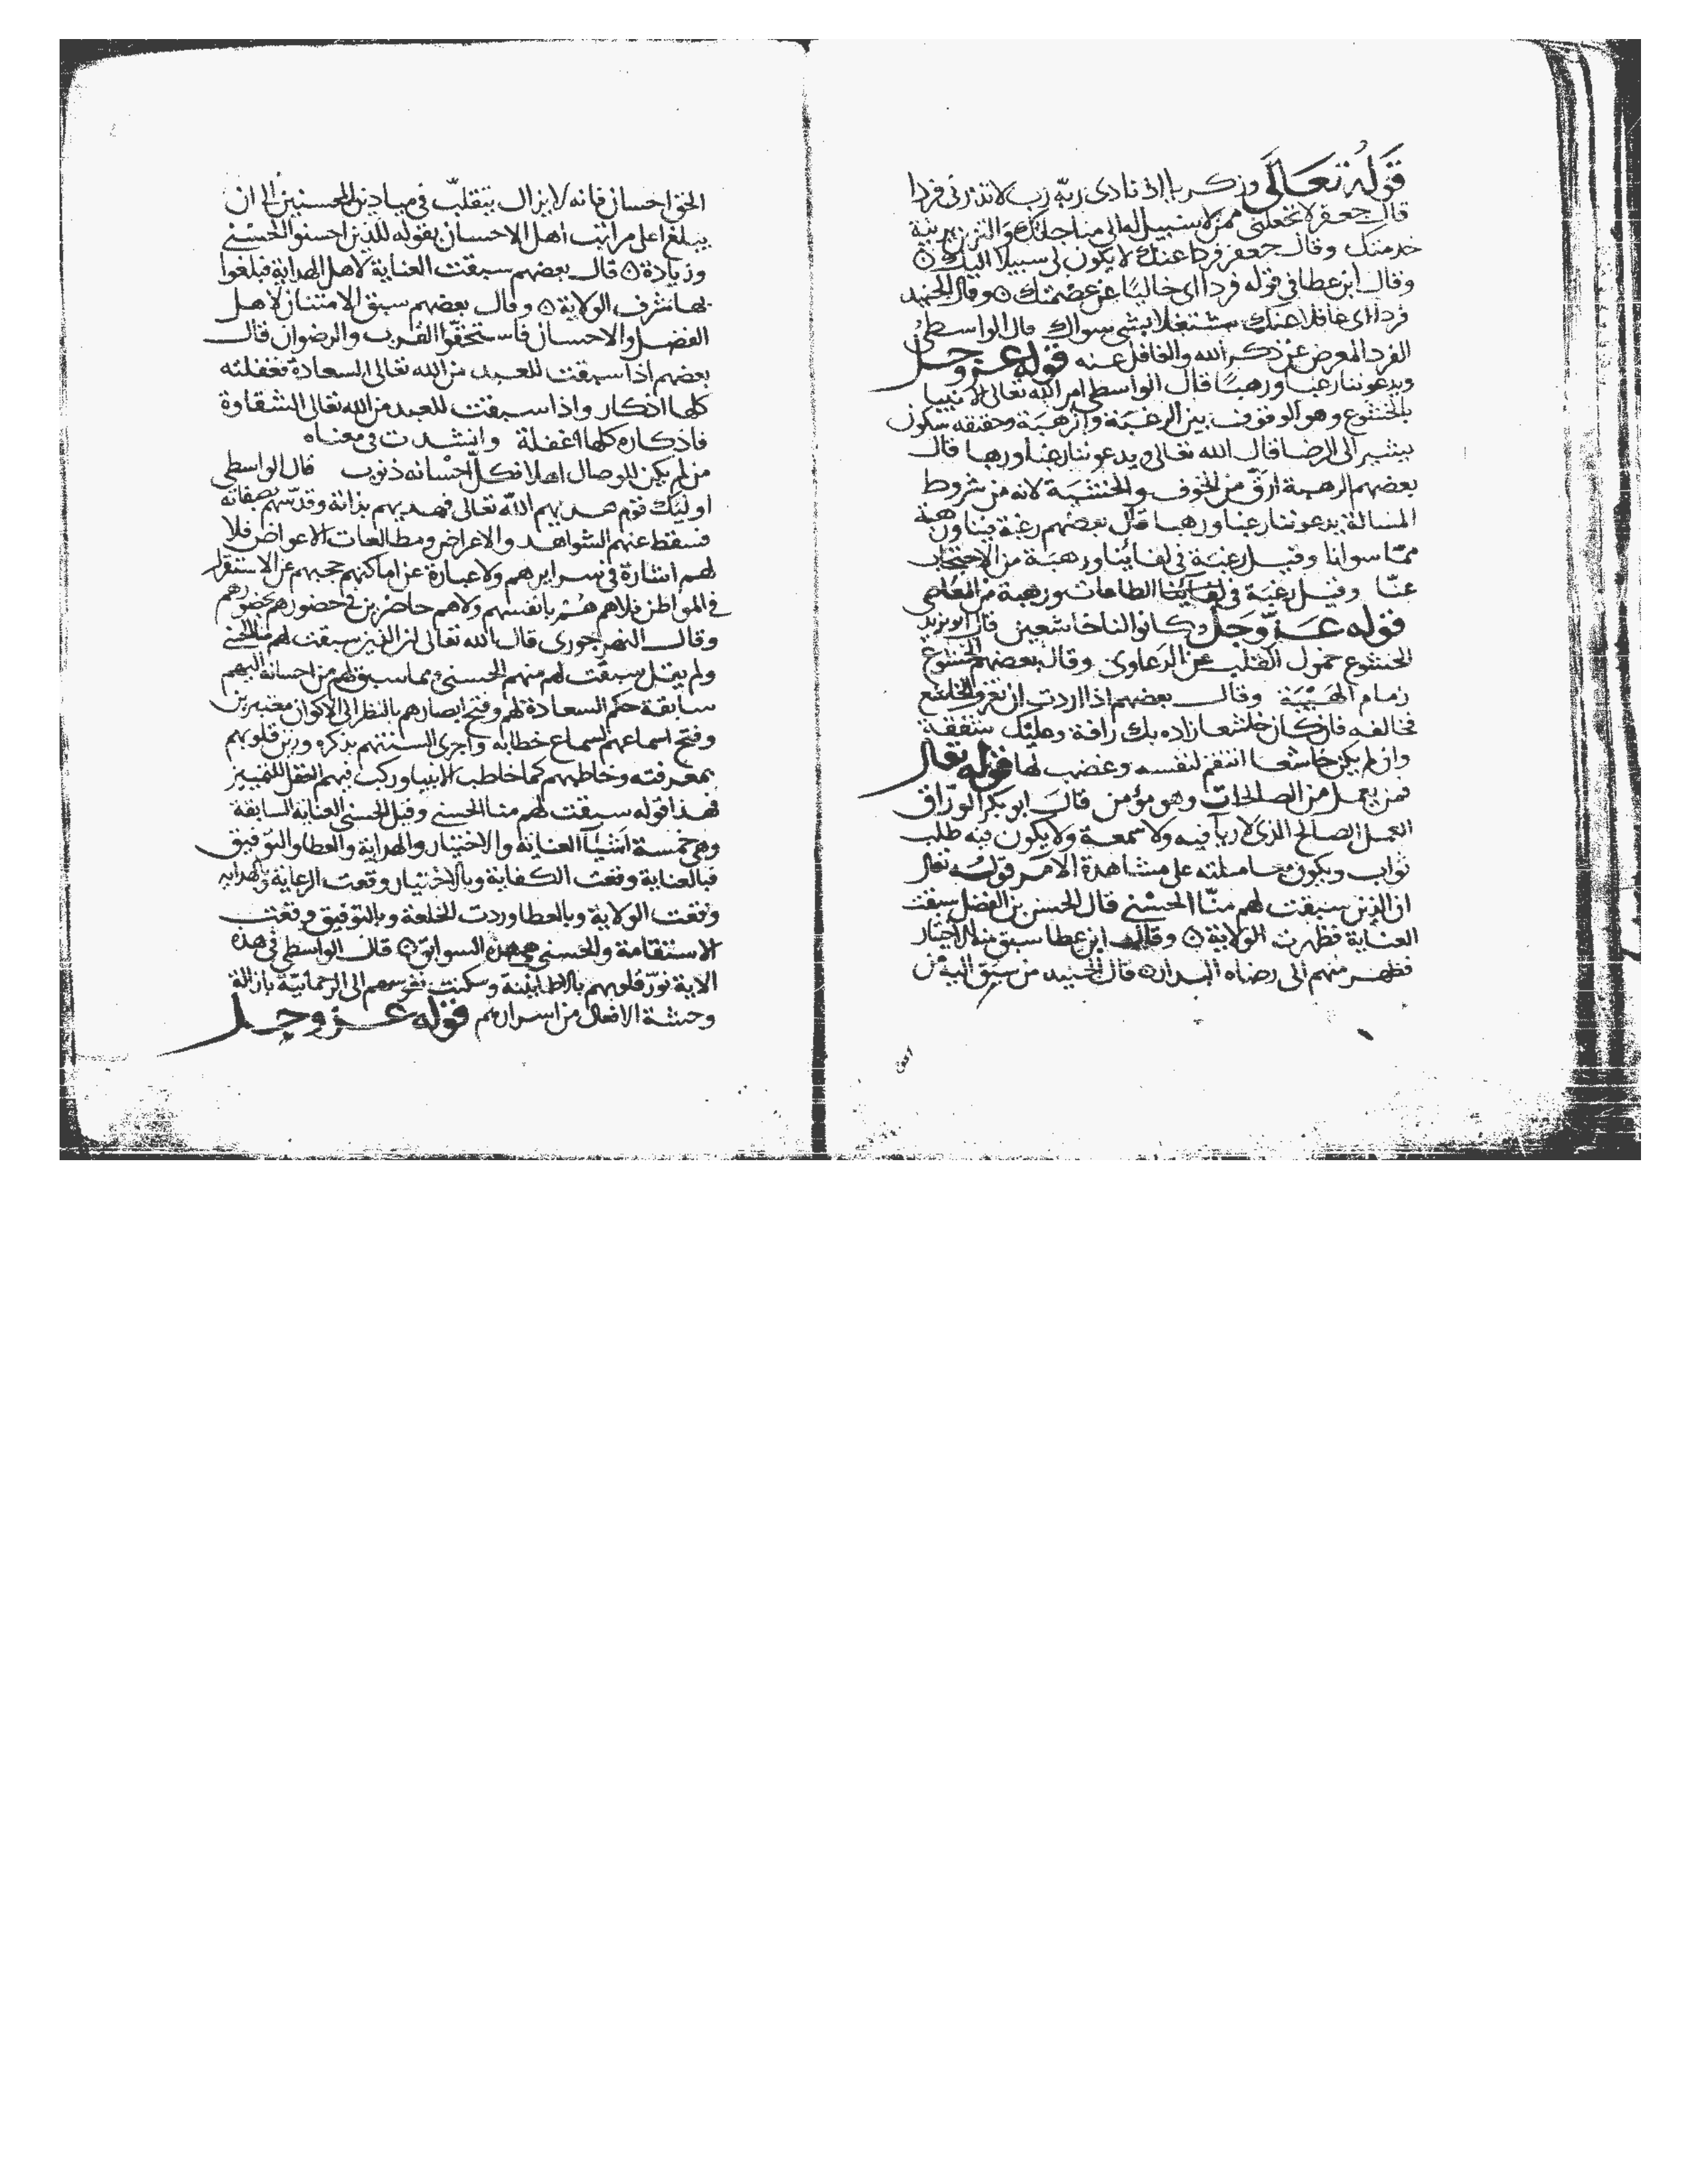 قوله تعالى وزكريا اذ نادى ربه رب لا تذرني فردا
قال جعفر لا تجعلني ممن لا سبيل له الى مناجاتك والتزين بزينة
خدمتك وقال جعفر فردا عنك لا يكون لي سبيلا اليك
وقال ابن عطا في قوله فردا اى خاليا عن عصمتك وقال الجنيد
فردا اى غافلا عنك مشتغلا بشى سواك قال الواسطي
الفرد المعرض عن ذكر الله والغافل عنه قوله عز وجل
ويدعوننا رغبا ورهبا قال الواسطي امر الله تعالى الانبيا
بالخشوع وهو الوقوف بين الرغبة والرهبة وحقيقه سكون
يشير الى الرضا قال الله تعالى ويدعوننا رغبا ورهبا قال
بعضهم الرهبة ارق من الخوف والخشية لانه من شروط
المسالة يدعوننا رغبا ورهبا قال بعضهم رغبة فينا ورهبة
مما سوانا وقيل رغبة في لقائنا ورهبة من الاحتجاب
عنا وقيل رغبة في الطاعات ورهبة من المعاصي
قوله عز وجل وكانوا لنا خاشعين قال ابو يزيد
الخشوع خمول القلب عن الدعاوى وقال بعضهم الخشوع
زمام الهيبة وقال بعضهم اذا اردت ان تعرف الخاشع
فخالفه فان كان خاشعا زاده بك رافة وعليك شفقة
وان لم يكن خاشعا انتقم لنفسه وغضب لها قوله تعالى
فمن يعمل من الصالحات وهو مؤمن قال ابو بكر الوراق
العمل الصالح الذى لا ريا فيه ولا سمعة ولا يكون فيه طلب
ثواب ويكون معاملته على مشاهدة الامر قوله تعالى
ان الذين سبقت لهم منا الحسنى قال الحسن بن الفضل سبقت
العناية فظهرت الولاية وقال ابن عطا سبق منه الاختيار
فظهر منهم الى رضاه البدار قال الجنيد من سبق اليه من
الحق احسان فانه لا يزال يتقلب في ميادين المحسنين الى ان
يبلغ اعلى مراتب اهل الاحسان بقوله للذين احسنوا الحسنى
وزيادة قال بعضهم سبقت العناية لاهل الهداية فبلغوا
بها شرف الولاية وقال بعضهم سبق الامتنان لاهل
الفضل والاحسان فاستحقوا القرب والرضوان قال
بعضهم اذا سبقت للعبد من الله تعالى السعادة فغفلته
كلها اذكار واذا سبقت للعبد من الله تعالى الشقاوة
فاذكاره كلها غفلة وانشدت في معناه
من لم يكن للوصال اهلا فكل احسانه ذنوب قال الواسطي
اوليك قوم هديهم الله تعالى فهديهم بذاته وقدسهم بصفاته
فسقط عنهم الشواهد والاعراض ومطالعات الاعواض فلا
لهم اشارة في سرايرهم ولا عبارة عن اماكنهم حجبهم عن الاستقرار
في المواطن فلاهم هم بانفسهم ولاهم حاضرين في حضورهم بحضورهم
وقال النهرجورى قال الله تعالى ان الذين سبقت لهم منا الحسنى
ولم يقل سبقت لهم منهم الحسنى مما سبق لهم من احسانه اليهم
سابقة حكم السعادة لهم وفتح ابصارهم بالنظر الى الاكوان معتبرين
وفتح اسماعهم لسماع خطابه واجرى السنتهم بذكره وزين قلوبهم
بمعرفته وخاطبهم كما خاطب الانبيا وركب فيهم العقل للتمييز
فهذا قوله سبقت لهم منا الحسنى وقيل الحسنى العناية السابقة
وهى خمسة اشيا العناية والاختيار والهداية والعطا والتوفيق
فبالعناية وقعت الكفاية وبالاختيار وقعت الرعاية وبالهداية
وقعت الولاية وبالعطا وردت الخلعة وبالتوفيق وقعت
الاستقامة والحسنى هى هذه السوابق قال الواسطي في هذه
الاية نور قلوبهم بالاطمانينة وسكنت نفوسهم الى الرحمانية بازالة
وحشة الافعال من اسرارهم قوله عز وجل